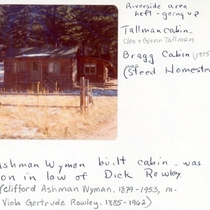 Riverside area
left - going up
Tallman cabin
Cleo & Glenn Tallman
Bragg Cabin (1975
(Steed Homeste
Ashman Wyman built cabin - was
son in law of Dick Rowley
(Clifford Ashman Wyman, 1879-1953, m.
Viola Gertrude Rowley, 1885-1962)